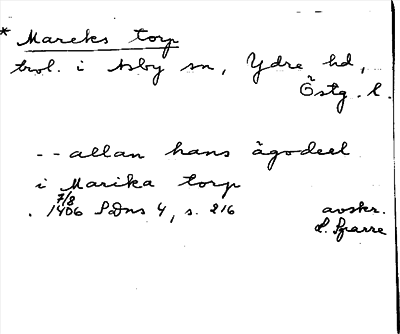 * Mareks torp
trol. i Asby sn, Ydre hd,
Östg. l.
-- allan hans ägodeel
i Marika torp
7/8
. 1406 SDns 4, s. 216
avskr.
L. Sparre